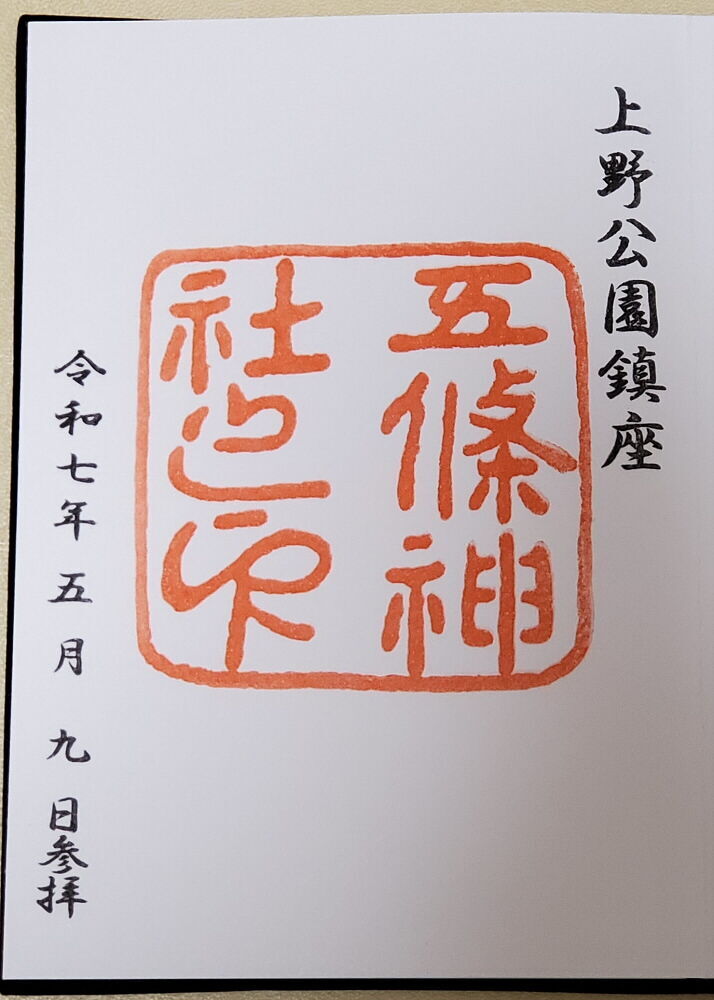 上野公園鎮座
五條神
社之印
令和七年五月九日参拝